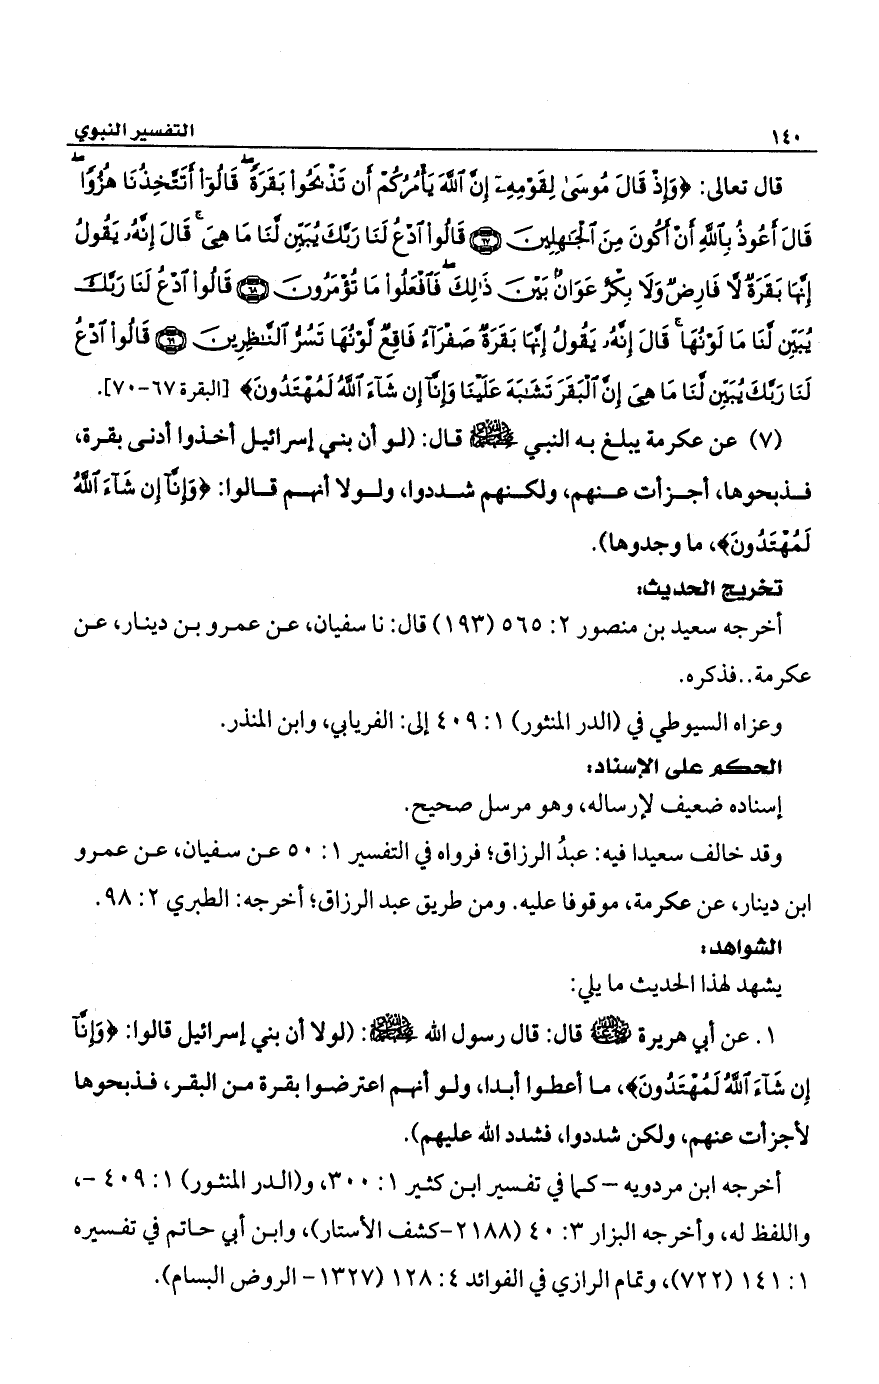 ١٤٠ التفسير النبوي
قال تعالى: ﴿وَإِذْ قَالَ مُوسَىٰ لِقَوْمِهِۦٓ إِنَّ ٱللَّهَ يَأْمُرُكُمْ أَن تَذْبَحُوا۟ بَقَرَةً ۖ قَالُوٓا۟ أَتَتَّخِذُنَا هُزُوًا ۖ
قَالَ أَعُوذُ بِٱللَّهِ أَنْ أَكُونَ مِنَ ٱلْجَـٰهِلِينَ ۝٦٧ قَالُوا۟ ٱدْعُ لَنَا رَبَّكَ يُبَيِّن لَّنَا مَا هِىَ ۚ قَالَ إِنَّهُۥ يَقُولُ
إِنَّهَا بَقَرَةٌ لَّا فَارِضٌ وَلَا بِكْرٌ عَوَانٌۢ بَيْنَ ذَٰلِكَ ۖ فَٱفْعَلُوا۟ مَا تُؤْمَرُونَ ۝٦٨ قَالُوا۟ ٱدْعُ لَنَا رَبَّكَ
يُبَيِّن لَّنَا مَا لَوْنُهَا ۚ قَالَ إِنَّهُۥ يَقُولُ إِنَّهَا بَقَرَةٌ صَفْرَآءُ فَاقِعٌ لَّوْنُهَا تَسُرُّ ٱلنَّـٰظِرِينَ ۝٦٩ قَالُوا۟ ٱدْعُ
لَنَا رَبَّكَ يُبَيِّن لَّنَا مَا هِىَ إِنَّ ٱلْبَقَرَ تَشَـٰبَهَ عَلَيْنَا وَإِنَّآ إِن شَآءَ ٱللَّهُ لَمُهْتَدُونَ﴾ [البقرة ٦٧-٧٠].
(٧) عن عكرمة يبلغ به النبي ﷺ قال: (لو أن بني إسرائيل أخذوا أدنى بقرة،
فذبحوها، أجزأت عنهم، ولكنهم شددوا، ولولا أنهم قالوا: ﴿وَإِنَّآ إِن شَآءَ ٱللَّهُ
لَمُهْتَدُونَ﴾، ما وجدوها).
تخريج الحديث:
أخرجه سعيد بن منصور ٢: ٥٦٥ (١٩٣) قال: نا سفيان، عن عمرو بن دينار، عن
عكرمة..فذكره.
وعزاه السيوطي في (الدر المنثور) ١: ٤٠٩ إلى: الفريابي، وابن المنذر.
الحكم على الإسناد:
إسناده ضعيف لإرساله، وهو مرسل صحيح.
وقد خالف سعيدا فيه: عبدُ الرزاق؛ فرواه في التفسير ١: ٥٠ عن سفيان، عن عمرو
ابن دينار، عن عكرمة، موقوفا عليه. ومن طريق عبد الرزاق؛ أخرجه: الطبري ٢: ٩٨.
الشواهد:
يشهد لهذا الحديث ما يلي:
١. عن أبي هريرة رضي الله عنه قال: قال رسول الله ﷺ: (لولا أن بني إسرائيل قالوا: ﴿وَإِنَّآ
إِن شَآءَ ٱللَّهُ لَمُهْتَدُونَ﴾، ما أعطوا أبدا، ولو أنهم اعترضوا بقرة من البقر، فذبحوها
لأجزأت عنهم، ولكن شددوا، فشدد الله عليهم).
أخرجه ابن مردويه -كما في تفسير ابن كثير ١: ٣٠٠، و(الدر المنثور) ١: ٤٠٩ -،
واللفظ له، وأخرجه البزار ٣: ٤٠ (٢١٨٨-كشف الأستار)، وابن أبي حاتم في تفسيره
١: ١٤١ (٧٢٢)، وتمام الرازي في الفوائد ٤: ١٢٨ (١٣٢٧- الروض البسام).